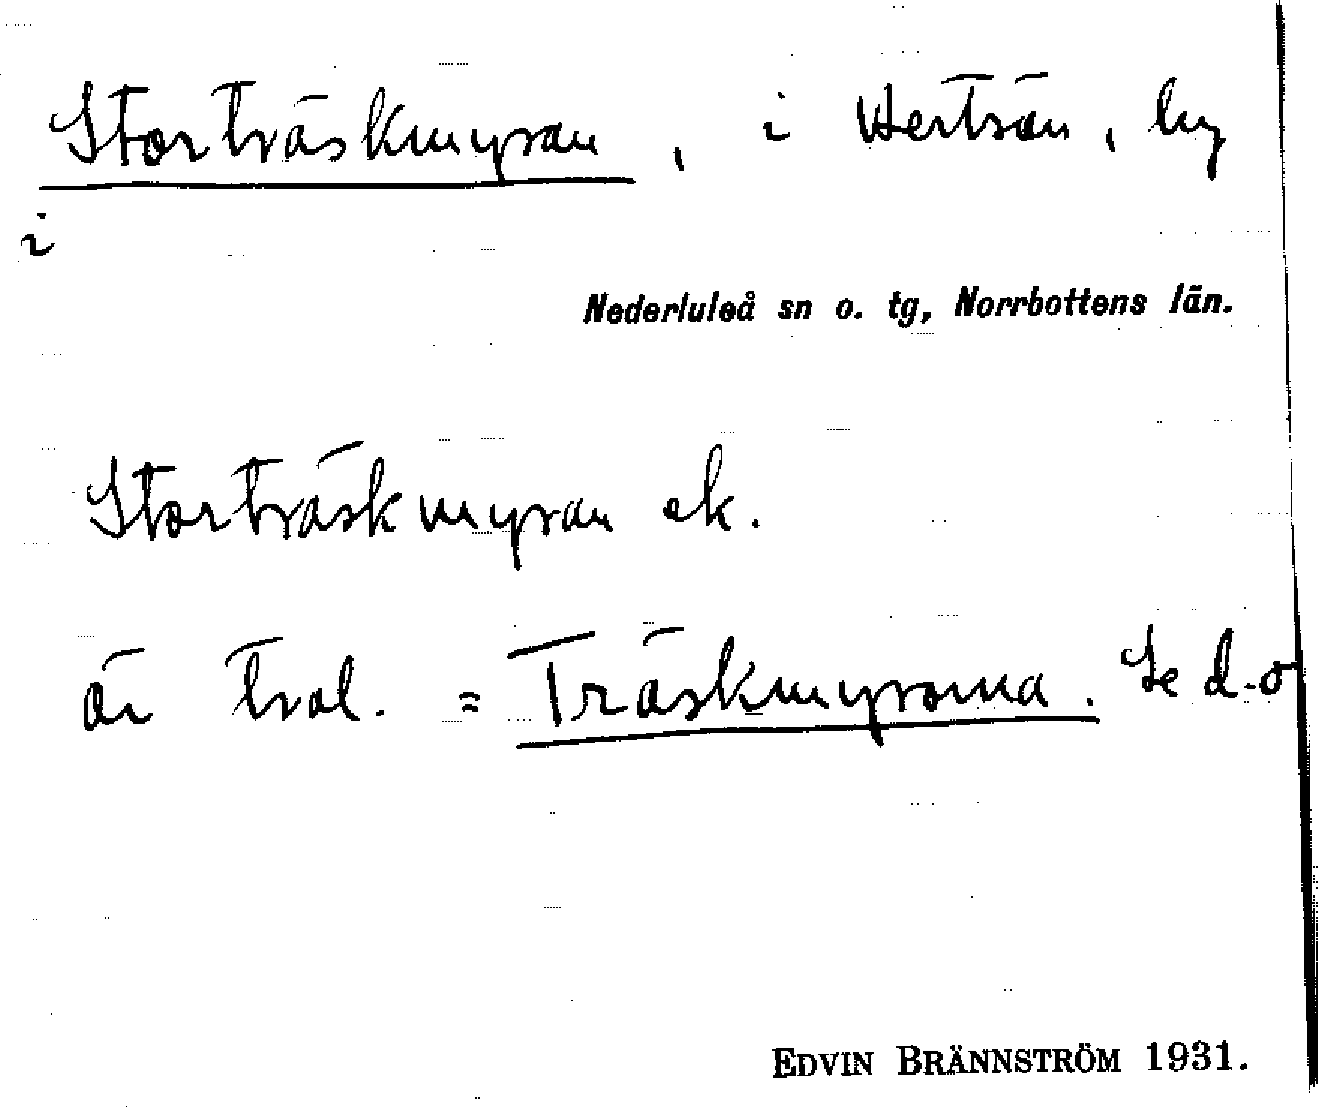 Storträskmyran, i Hertsön, by
i
Nederluleå sn o. tg, Norrbottens län.
Storträskmyran ek.
är trol. = Träskmyrorna. Se d.o
EDVIN BRÄNNSTRÖM 1931.